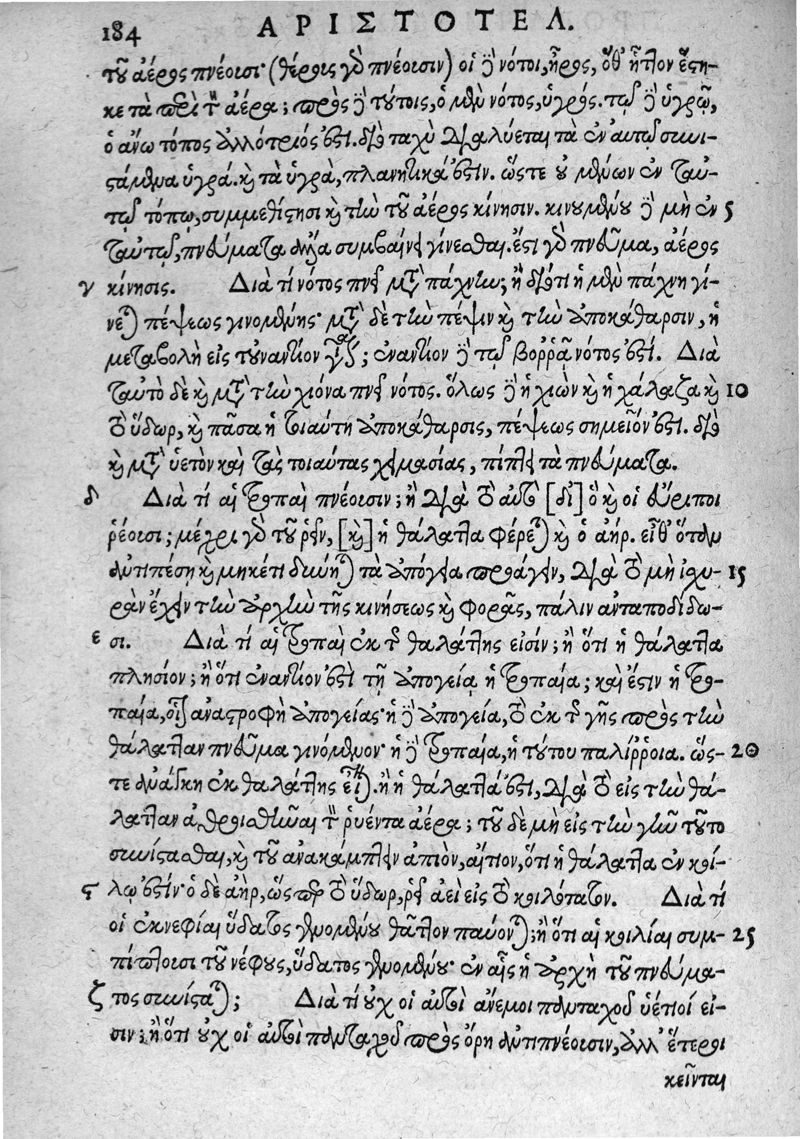 184 ΑΡΙΣΤΟΤΕΛ.
τοῦ ἀέρος πνέουσι· (θέρους γὸ πνέουσιν) οἱ δὲ νότοι, ἦρος, ὅθ' ἧττον ἕστη-
κε τὰ περὶ τὸν ἀέρα; πρὸς δὲ τούτοις, ὁ μὲν νότος, ὑγρός. τῷ δὲ ὑγρῷ,
ὁ ἄνω τόπος ἀλλότριός ἐστι. διὸ ταχὺ διαλύεται τὰ ἐν αὐτῷ συνι-
στάμενα ὑγρά. καὶ τὰ ὑγρὰ, πλανητικά ἐστιν. ὥστε οὐ μένων ἐν ταὐ-
τῷ τόπῳ, συμμεθίστησι καὶ τὴν τοῦ ἀέρος κίνησιν. κινουμένου δὲ μὴ ἐν 5
ταὐτῷ, πνεύματα ἄλλα συμβαίνει γίνεσθαι. ἔστι γὸ πνεῦμα, ἀέρος
γ κίνησις. Διὰ τί νότος πνεῖ μετὰ πάχνην; ἢ διότι ἡ μὲν πάχνη γί-
νεται πέψεως γινομένης· μετὰ δὲ τὴν πέψιν καὶ τὴν ἀποκάθαρσιν, ἡ
μεταβολὴ εἰς τοὐναντίον γίνεται; ἐναντίον δὲ τῷ βορρᾷ νότος ἐστί. Διὰ
ταὐτὸ δὲ καὶ μετὰ τὴν χιόνα πνεῖ νότος. ὅλως δὲ ἡ χιὼν καὶ ἡ χάλαζα καὶ 10
τὸ ὕδωρ, καὶ πᾶσα ἡ τοιαύτη ἀποκάθαρσις, πέψεως σημεῖόν ἐστι. διὸ
καὶ μετὰ ὑετὸν καὶ τὰς τοιαύτας χειμασίας, πίπτει τὰ πνεύματα.
δ Διὰ τί αἱ τροπαὶ πνέουσιν; ἢ διὰ τὸ αὐτὸ [δι] ὃ καὶ οἱ εὔριποι
ῥέουσι; μέχρι γὸ τοῦ ῥεῖν, [καὶ] ἡ θάλαττα φέρεται καὶ ὁ ἀήρ. εἶθ' ὅταν
ἀντιπέσῃ καὶ μηκέτι δύνηται τὰ ἀπόγεια προάγειν, διὰ τὸ μὴ ἰσχυ- 15
ρὰν ἔχειν τὴν ἀρχὴν τῆς κινήσεως καὶ φορᾶς, πάλιν ἀνταποδίδω-
ε σι. Διὰ τί αἱ τροπαὶ ἐκ τῆς θαλάττης εἰσίν; ἢ ὅτι ἡ θάλαττα
πλησίον; ἢ ὅτι ἐναντίον ἐστὶ τῇ ἀπογείᾳ ἡ τροπαία; καὶ ἔστιν ἡ τρο-
παία, οἷον ἀναστροφὴ ἀπογείας· ἡ δὲ ἀπογεία, τὸ ἐκ τῆς γῆς πρὸς τὴν
θάλατταν πνεῦμα γινόμενον· ἡ δὲ τροπαία, ἡ τούτου παλίρροια. ὥς- 20
τε ἀνάγκη ἐκ θαλάττης εἶναι. ἢ ἡ θάλαττά ἐστι, διὰ τὸ εἰς τὴν θά-
λατταν ἀθροισθῆναι τὸν ῥυέντα ἀέρα; τοῦ δὲ μὴ εἰς τὴν γῆν τοῦτο
συνίστασθαι, καὶ τοῦ ἀνακάμπτειν ἀπιὸν, αἴτιον, ὅτι ἡ θάλαττα ἐν κοί-
ς λῳ ἐστίν· ὁ δὲ ἀὴρ, ὥσπερ τὸ ὕδωρ, ῥεῖ ἀεὶ εἰς τὸ κοιλότατον. Διὰ τί
οἱ ἐκνεφίαι ὕδατος γενομένου θᾶττον παύονται; ἢ ὅτι αἱ κοιλίαι συμ- 25
πίπτουσι τοῦ νέφους, ὕδατος γενομένου· ἐν αἷς ἡ ἀρχὴ τοῦ πνεύμα-
ζ τος συνίσταται; Διὰ τί οὐχ οἱ αὐτοὶ ἄνεμοι πανταχοῦ ὑέτιοί εἰ-
σιν; ἢ ὅτι οὐχ οἱ αὐτοὶ πανταχοῦ πρὸς ὄρη ἀντιπνέουσιν, ἀλλ' ἕτεροι
κεῖνται